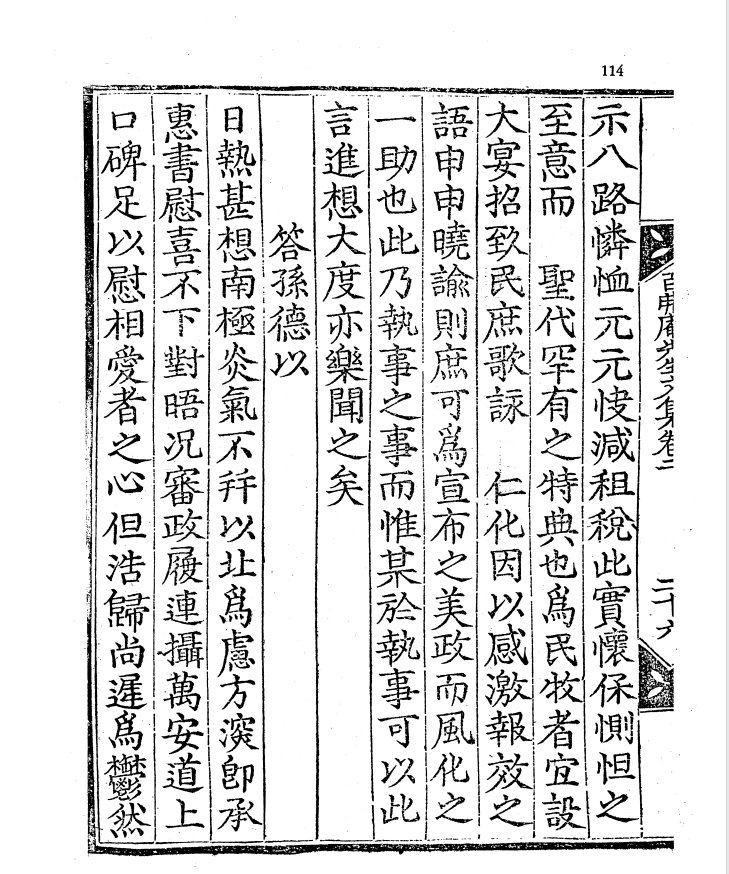 114
百弗庵先生文集卷二
二十六
示八路憐恤元元特減租稅此實懷保惻怛之
至意而 聖代罕有之特典也爲民牧者宜設
大宴招致民庶歌詠 仁化因以感激報效之
語申申曉諭則庶可爲宣布之美政而風化之
一助也此乃執事之事而惟某於執事可以此
言進想大度亦樂聞之矣
答孫德以
日熱甚想南極炎氣不幷以北爲慮方深卽承
惠書慰喜不下對晤況審政履連攝萬安道上
口碑足以慰相愛者之心但浩歸尚遲爲鬱然